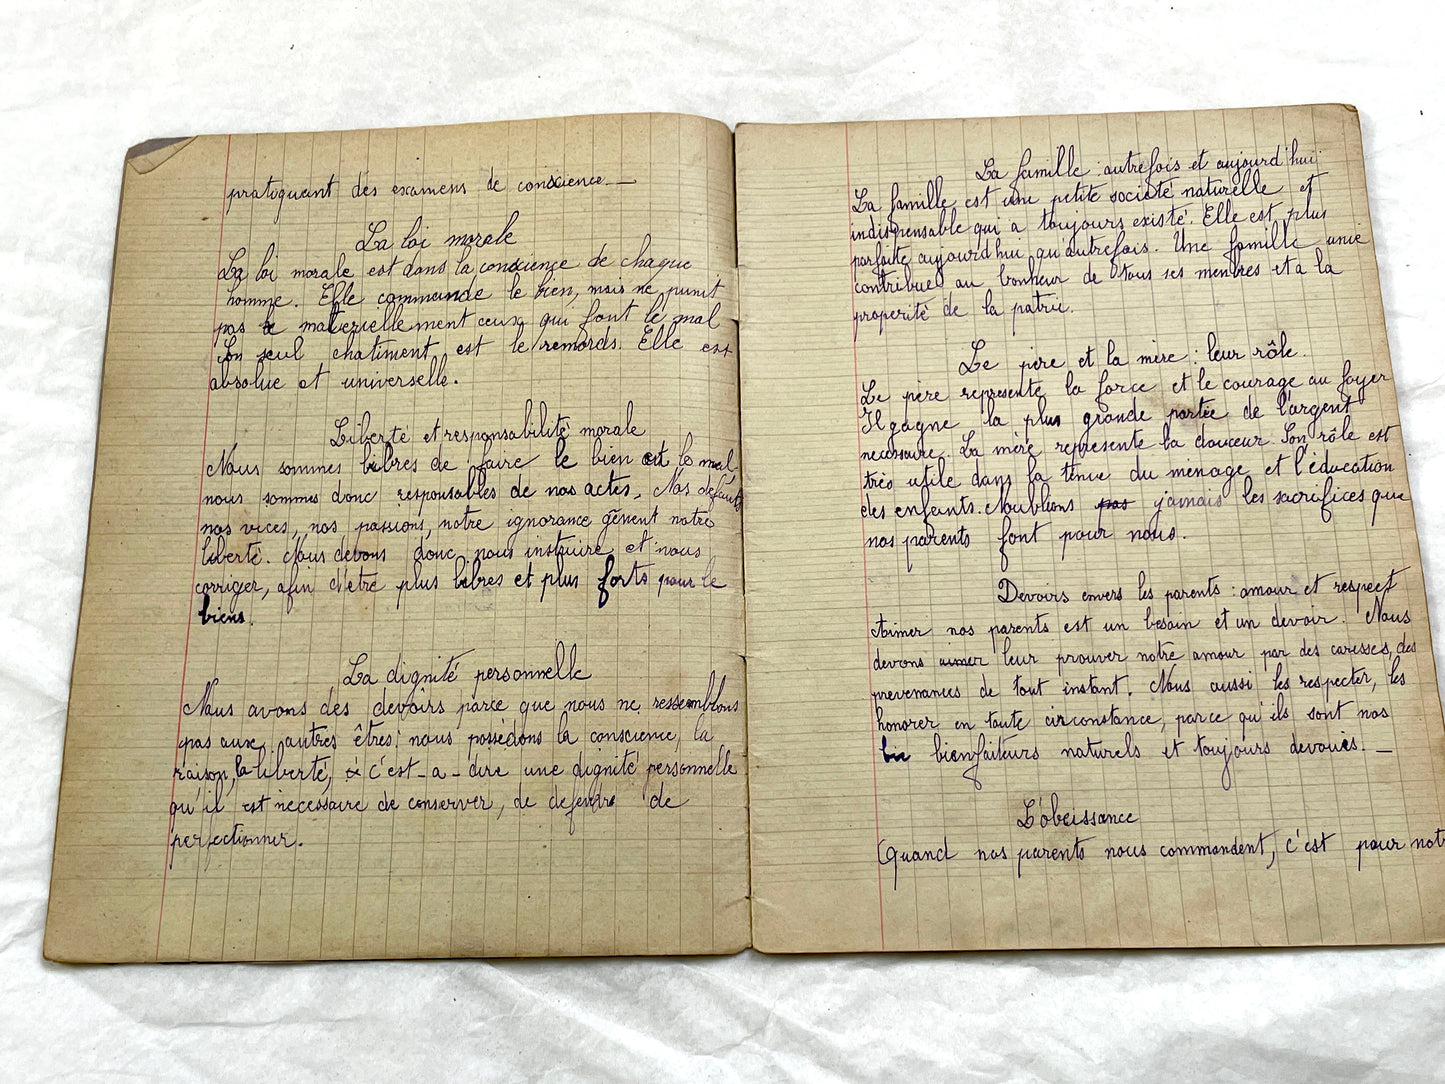 pratiquant des examens de conscience._
La loi morale
La loi morale est dans la conscience de chaque
homme. Elle commande le bien, mais ne punit
pas materiellement ceux qui font le mal
Son seul chatiment est le remords. Elle est
absolue et universelle.
Liberté et responsabilité morale
Nous sommes libres de faire le bien et le mal,
nous sommes donc responsables de nos actes. Nos défauts
nos vices, nos passions, notre ignorance gênent notre
liberté. Nous devons donc nous instruire et nous
corriger, afin d'être plus libres et plus forts pour le
biens.
La dignité personnelle
Nous avons des devoirs parce que nous ne ressemblons
pas aux autres êtres: nous possédons la conscience, la
raison, la liberté, c'est_a_dire une dignité personnelle
qu'il est necessaire de conserver, de defendre de
perfectionner.
La famille : autrefois et aujourd'hui
La famille est une petite societé naturelle et
indispensable qui a toujours existé. Elle est plus
parfaite aujourd'hui qu'autrefois. Une famille unie
contribue au bonheur de tous ses membres et à la
properité de la patrie.
Le père et la mère : leur rôle.
Le père represente la force et le courage au foyer
Il gagne la plus grande partée de l'argent
necessaire. La mère represente la douceur. Son rôle est
très utile dans la tenue du ménage et l'éducation
des enfants. Noublions pas jamais les sacrifices que
nos parents font pour nous.
Devoirs envers les parents : amour et respect
Aimer nos parents est un besoin et un devoir. Nous
devons aimer leur prouver notre amour par des caresses, des
prevenances de tout instant. Nous aussi les respecter, les
honorer en toute circonstance, parce qu'ils sont nos
bienfaiteurs naturels et toujours devoués. _
L'obeissance
Quand nos parents nous commandent, c'est pour notr